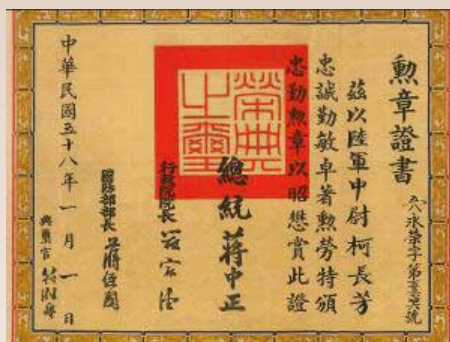 勲章證書
茲以陸軍中尉柯長芳
忠誠勤敏卓著勲勞特頒
忠勤勲章以昭懋賞此證
榮典之璽
總統 蔣中正
行政院院長
國防部部長 蔣經國
中華民國五十八年一月一日